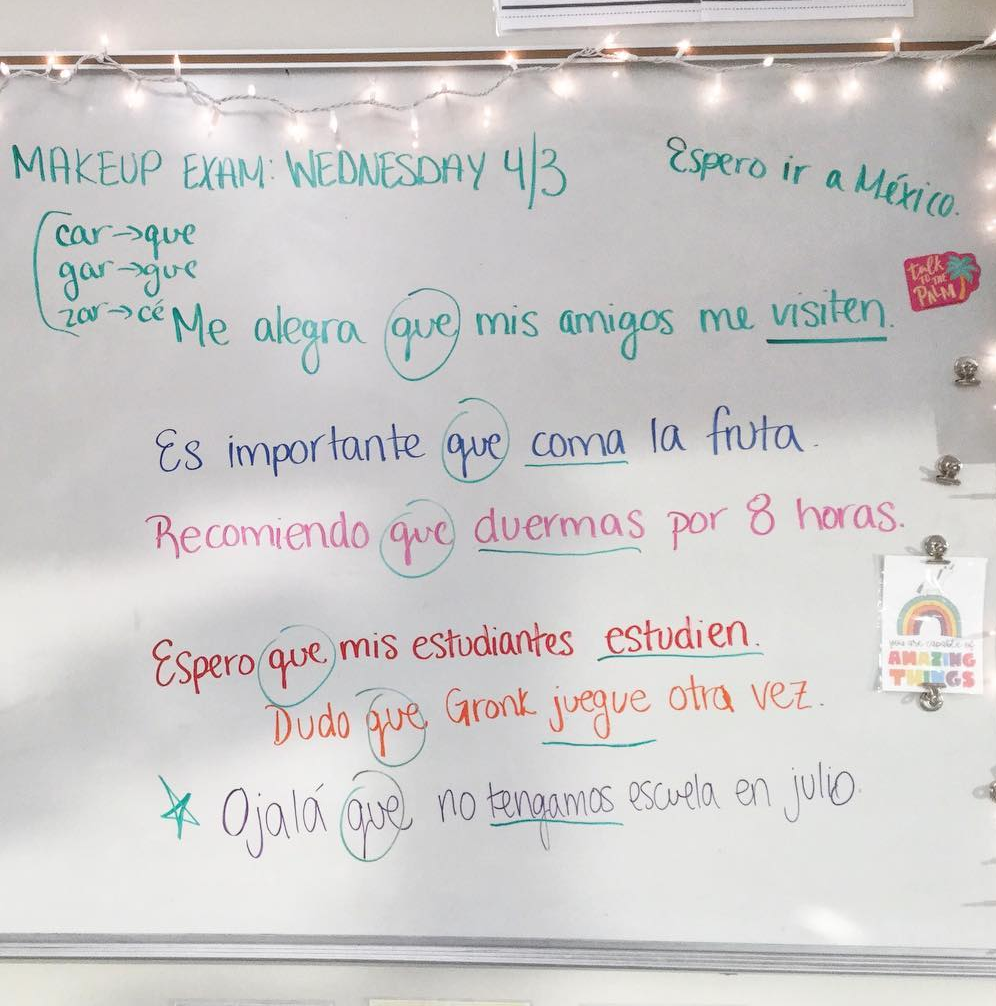 MAKEUP EXAM: WEDNESDAY 4/3
Espero ir a México.
car→que
gar→gue
zar→cé
Me alegra que mis amigos me visiten.
talk
TO THE
PALM
Es importante que coma la fruta.
Recomiendo que duermas por 8 horas.
you are capable of
AMAZING
THINGS
Espero que mis estudiantes estudien.
Dudo que Gronk juegue otra vez.
Ojalá que no tengamos escuela en julio.